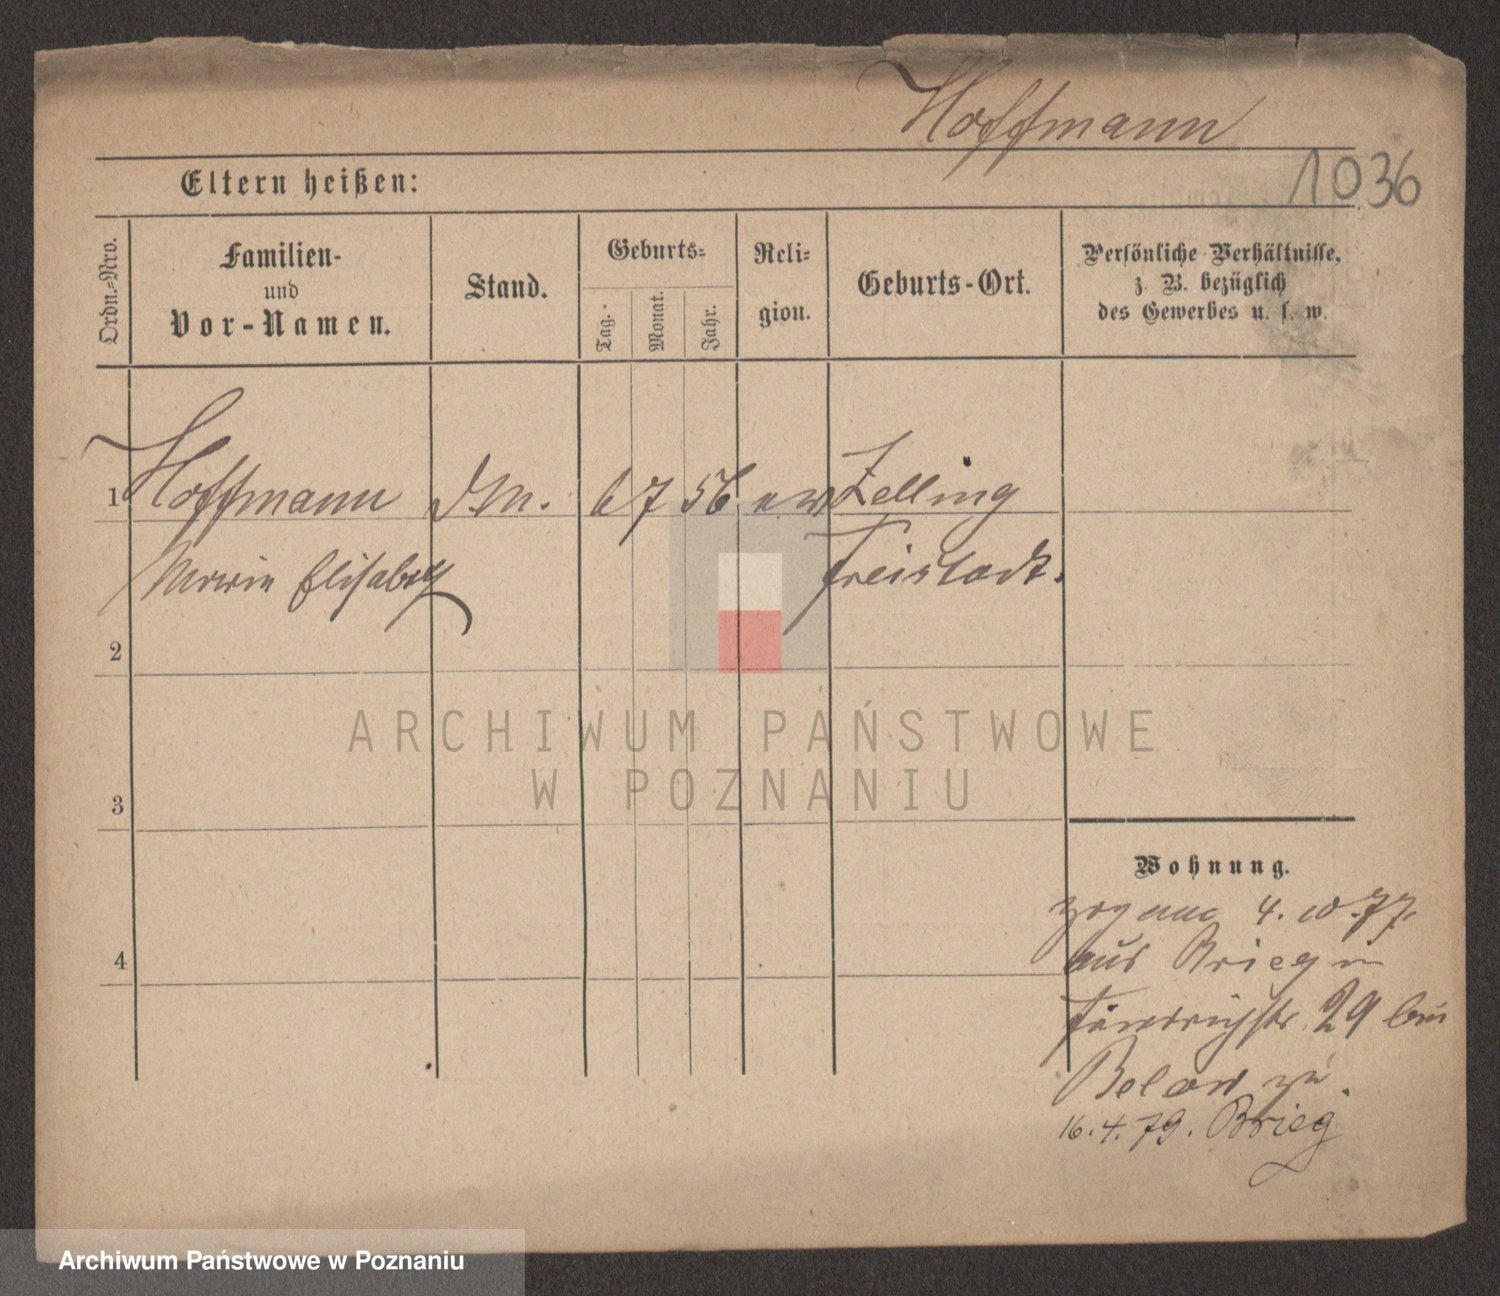 Hoffmann
1036
Eltern heißen:
Ordn.-Nro.
Familien-
und
Vor-Namen.
Stand.
Geburts-
Tag.
Monat.
Jahr.
Reli-
gion.
Geburts-Ort.
Persönliche Verhältnisse,
z. B. bezüglich
des Gewerbes u. s. w.
1 Hoffmann 6 7 56 Zelling
Elisabeth Freistadt.
2
3
4
ARCHIWUM PAŃSTWOWE
W POZNANIU
Wohnung.
zog am 4. 10. 77.
aus Brieg in
29 bei
Below zu.
16. 4. 79. Brieg
Archiwum Państwowe w Poznaniu